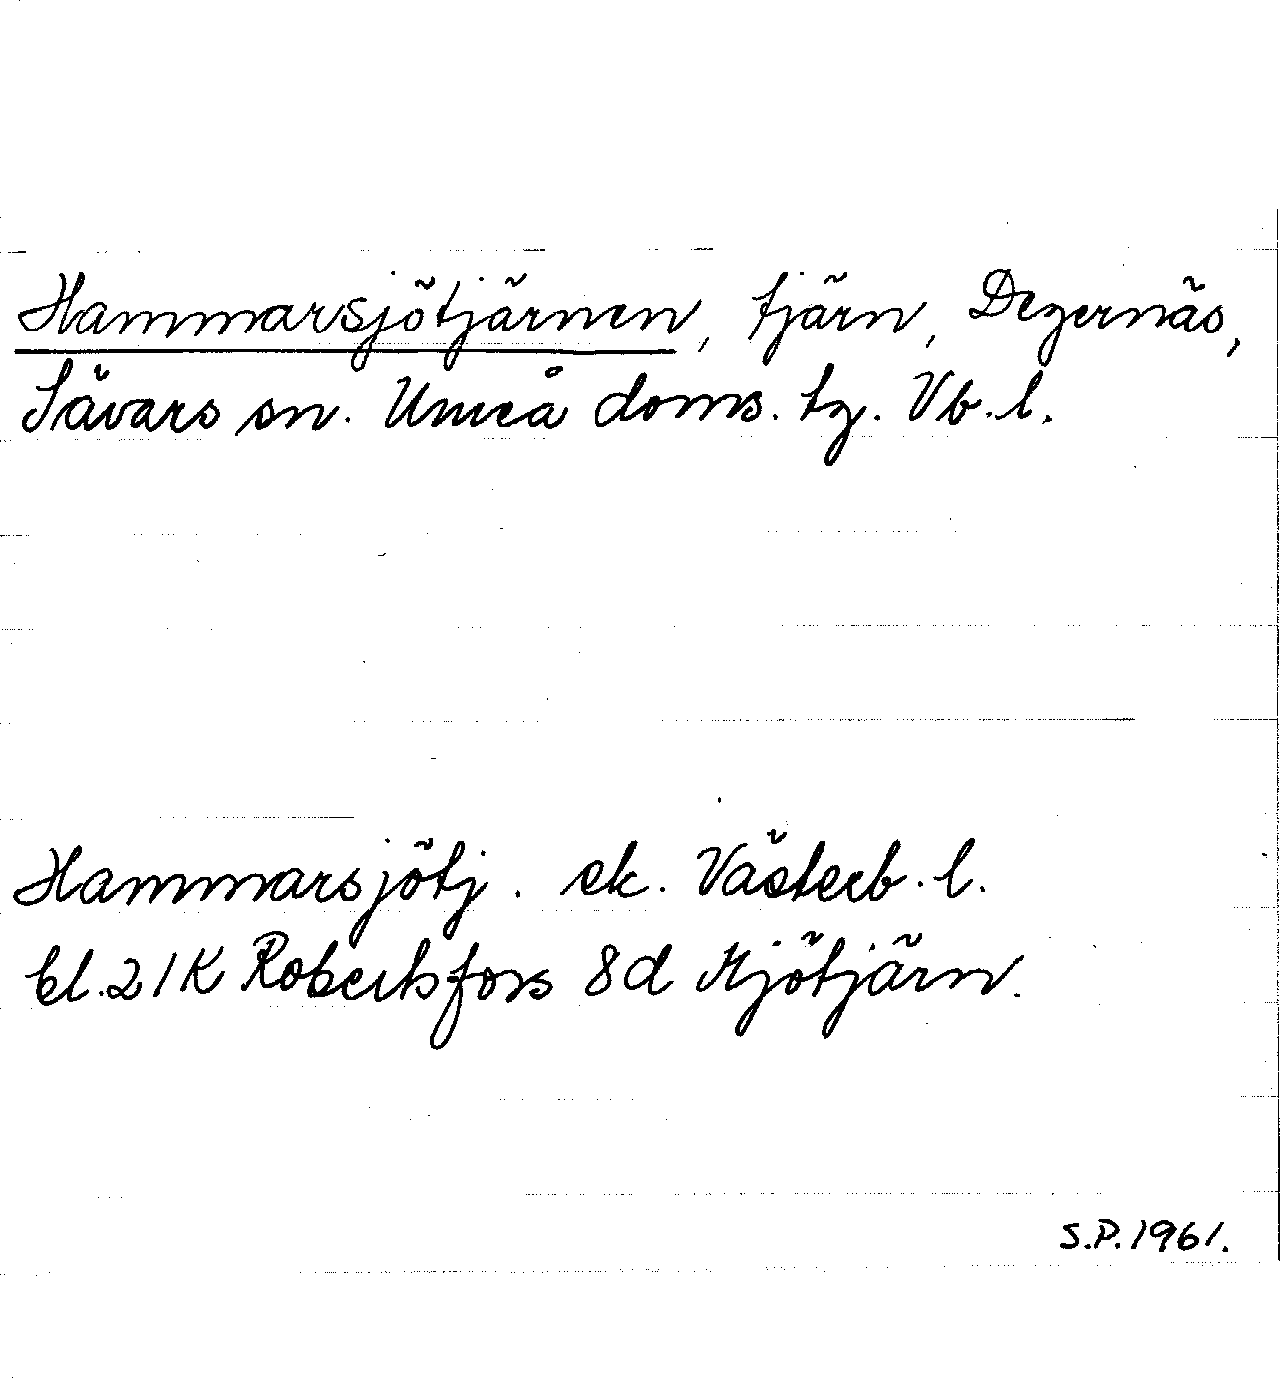 Hammarsjötjärnen, tjärn, Degernäs,
Sävars sn. Umeå doms. tg. Vb. l.
Hammarsjötj. ek. Västerb. l.
bl. 21K Robertsfors 8d Mjötjärn.
S.P. 1961.